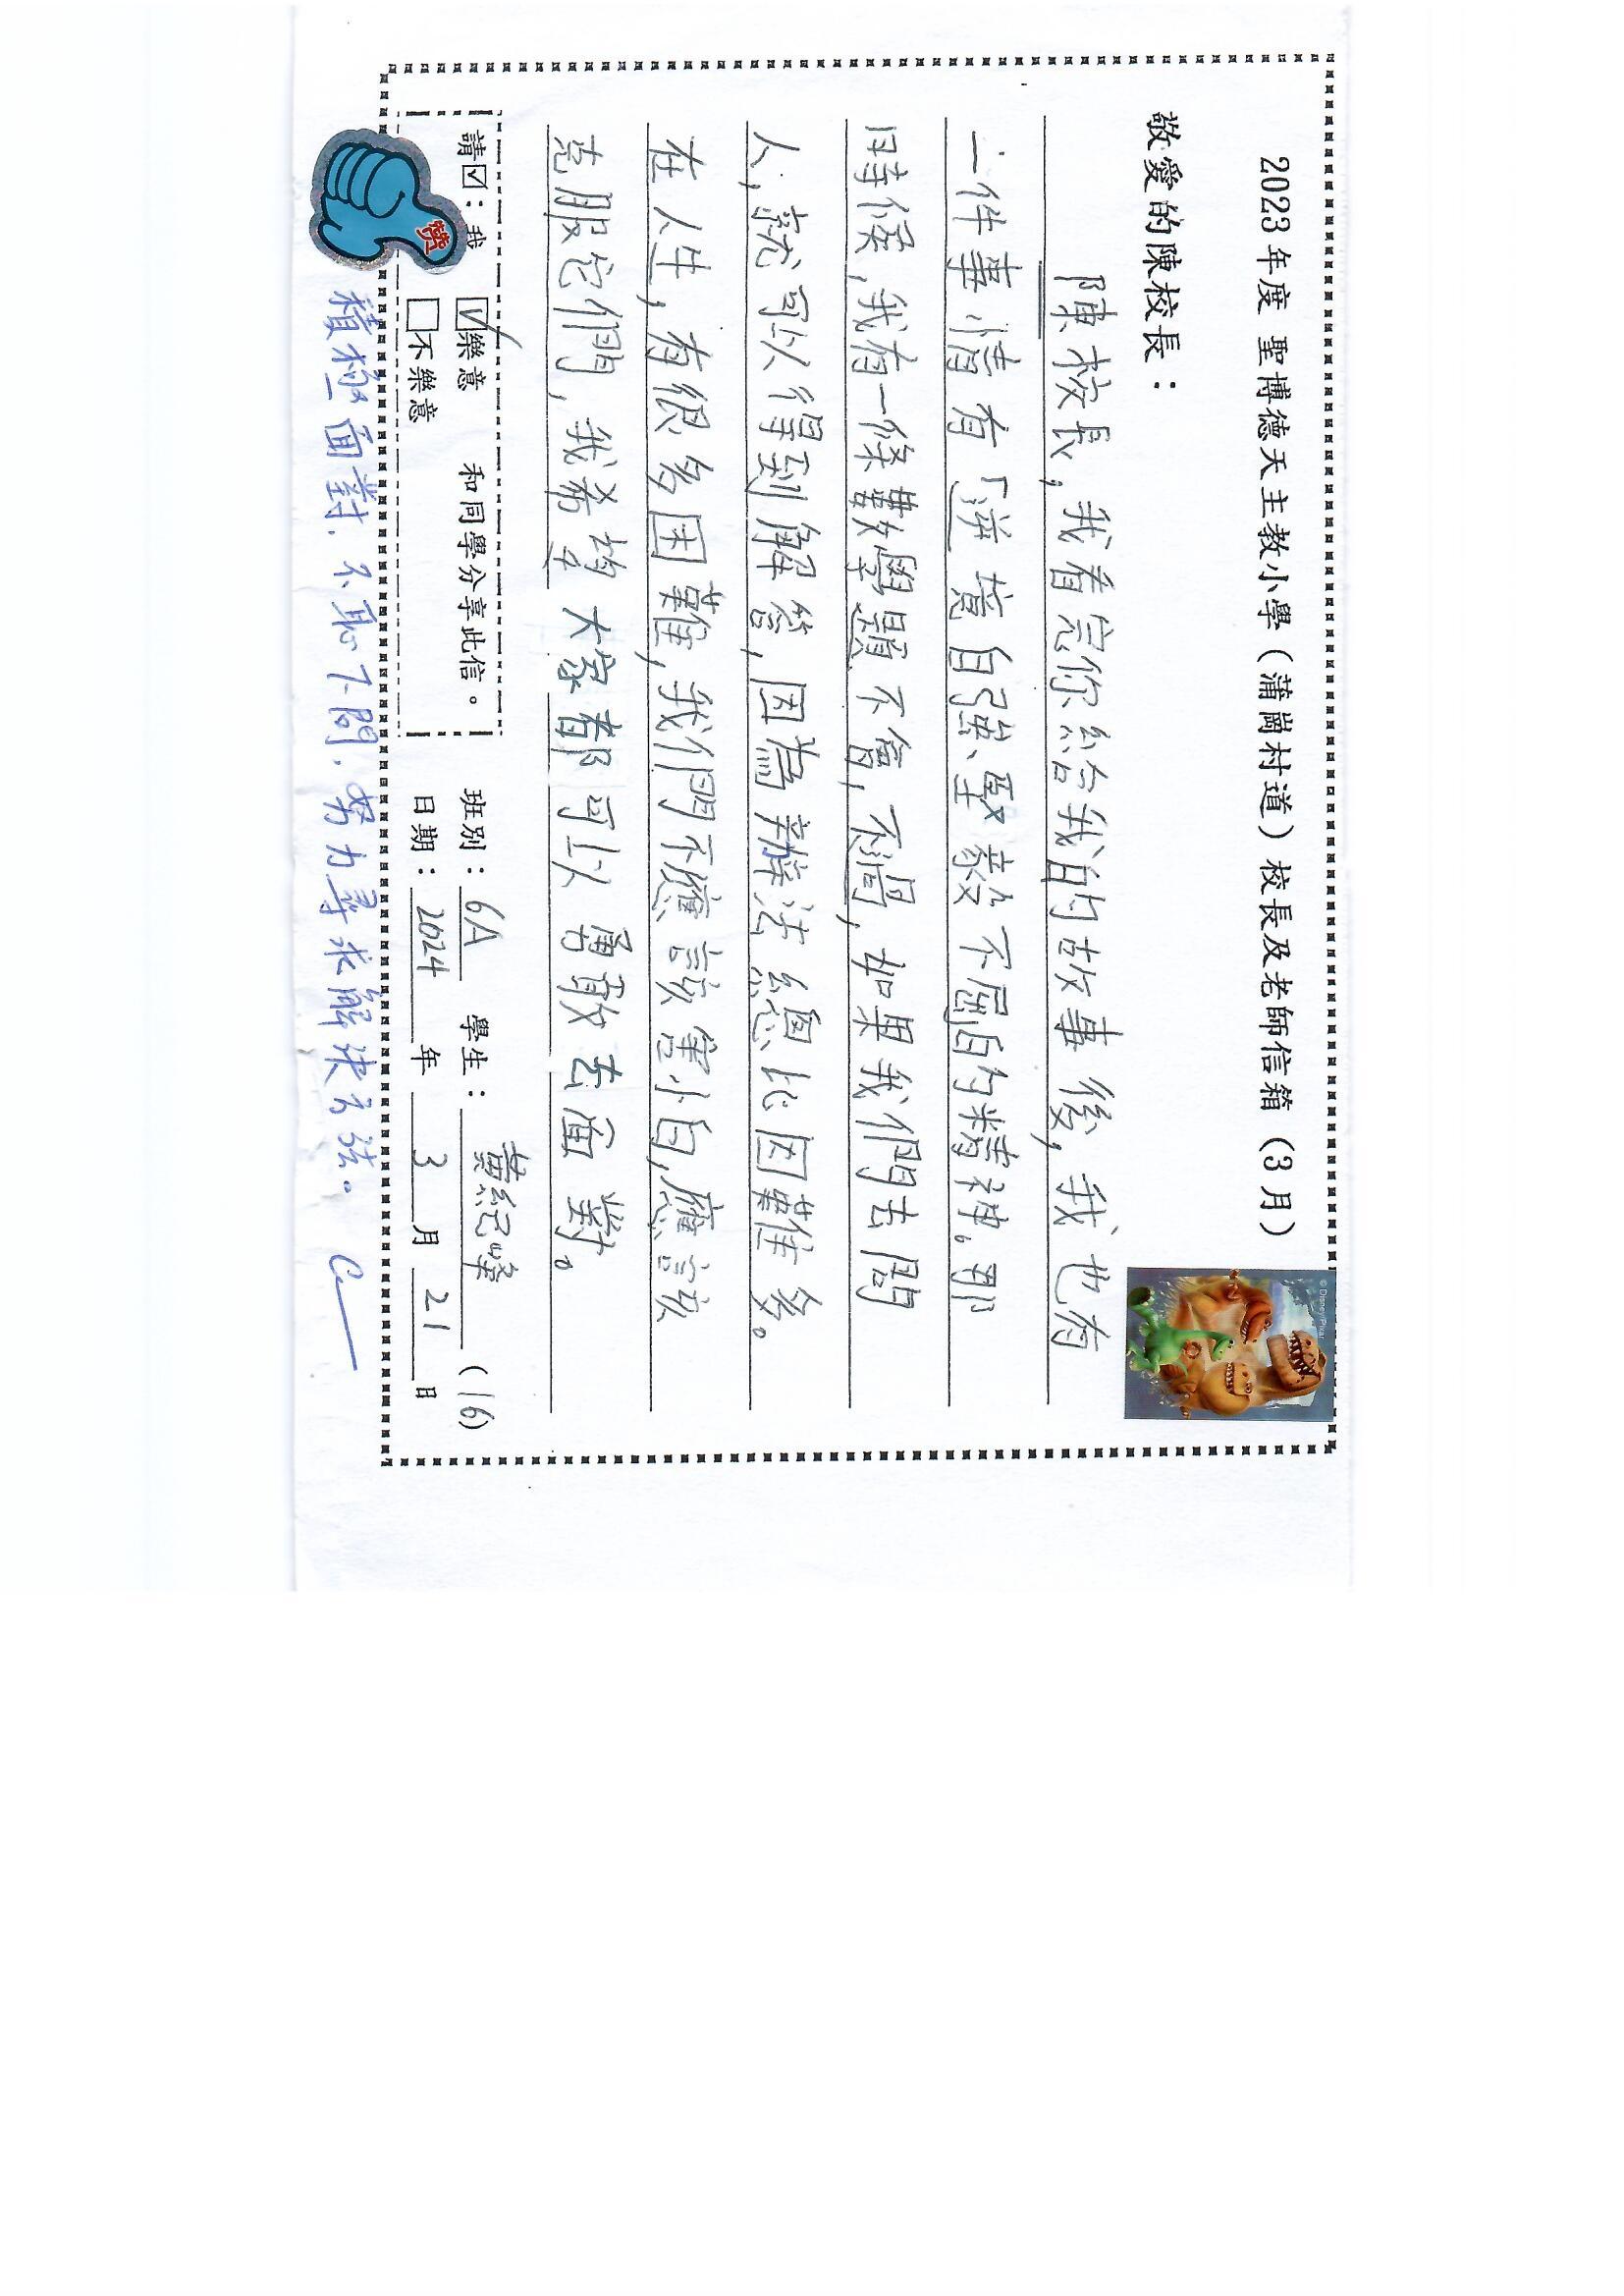 2023 年度 聖博德天主教小學（蒲崗村道）校長及老師信箱（3 月）
敬愛的陳校長：
陳校長，我看完你給我的故事後，我也有
一件事情有「逆境自強、堅毅不屈的精神。那
時候，我有一條數學題不會，不過，如果我們去問
人，就可以得到解答，因為辦法總比困難多。
在人生，有很多困難，我們不應該害怕，應該
克服它們，我希望大家都可以勇敢去面對。
請☑：我 ☑樂意 和同學分享此信。
□不樂意
班別：6A 學生：黃紀燁 (16)
日期：2024 年 3 月 21 日
讚
積極面對，不恥下問，努力尋求解決方法。
© Disney/Pixar